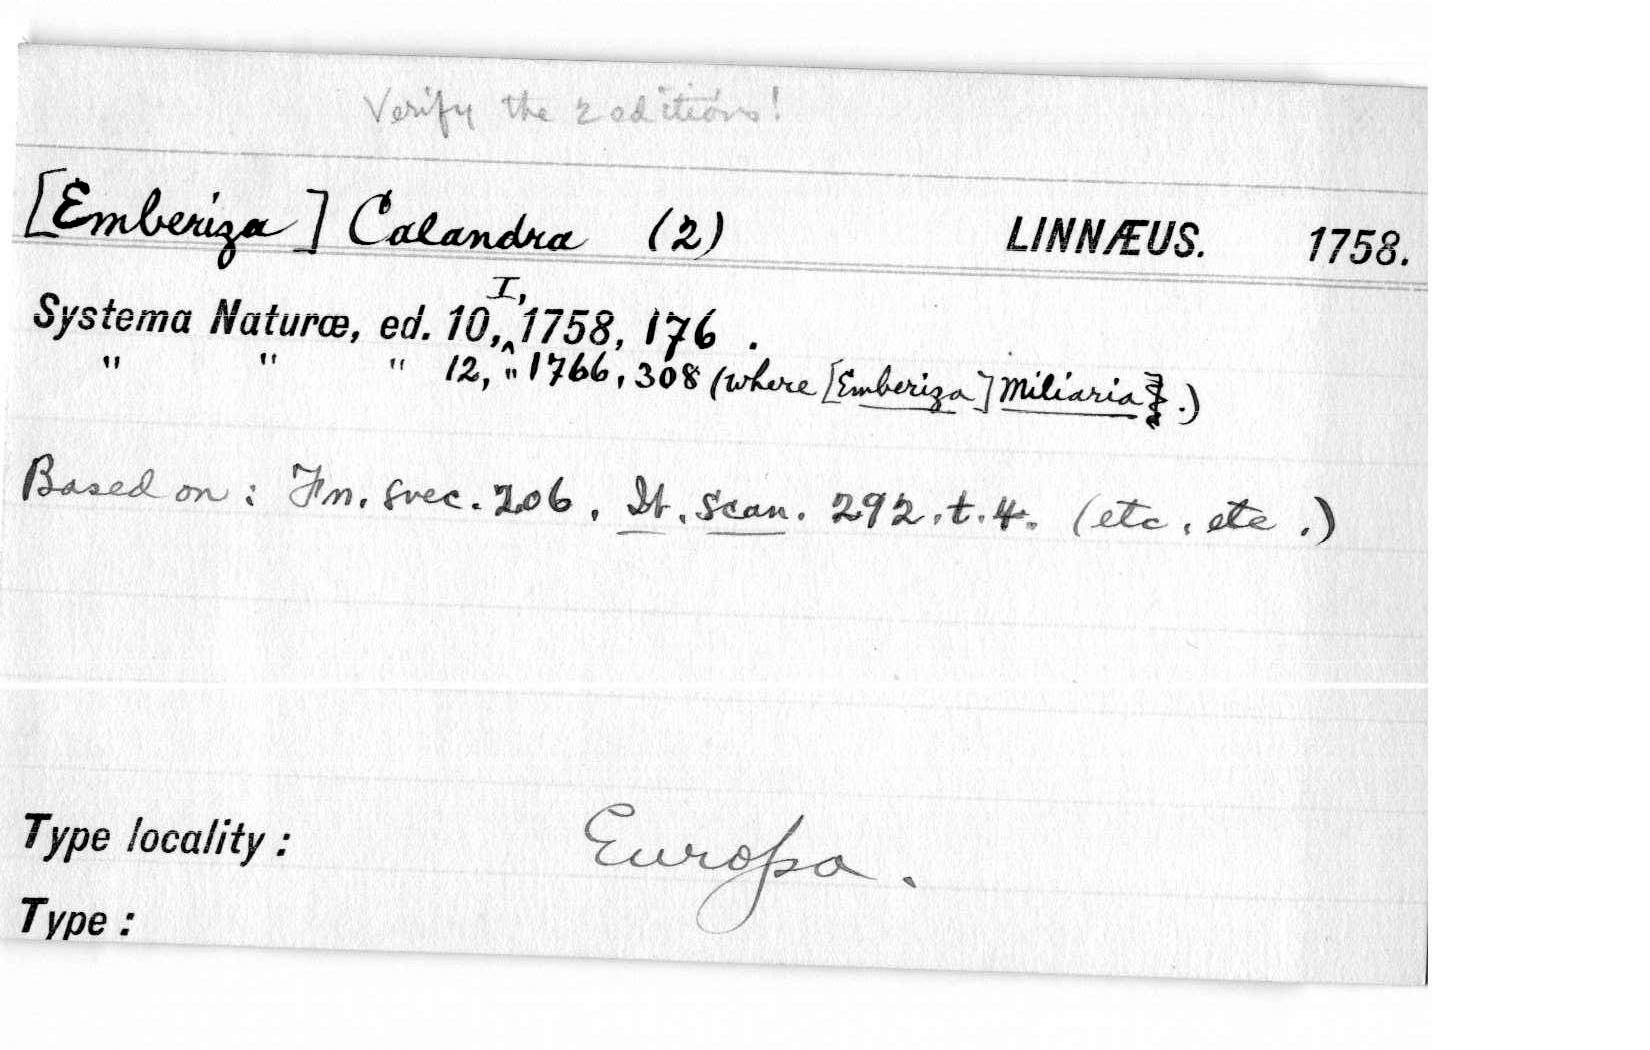 Verify the 2 editions!
[Emberiza] Calandra (2) LINNÆUS. 1758.
Systema Naturæ, ed. 10, I, 1758, 176.
" " " 12, " 1766, 308 (where [Emberiza] Miliaria.)
Based on: Fn. svec. 206, It. scan. 292. t. 4. (etc, etc.)
Type locality: Europa.
Type: